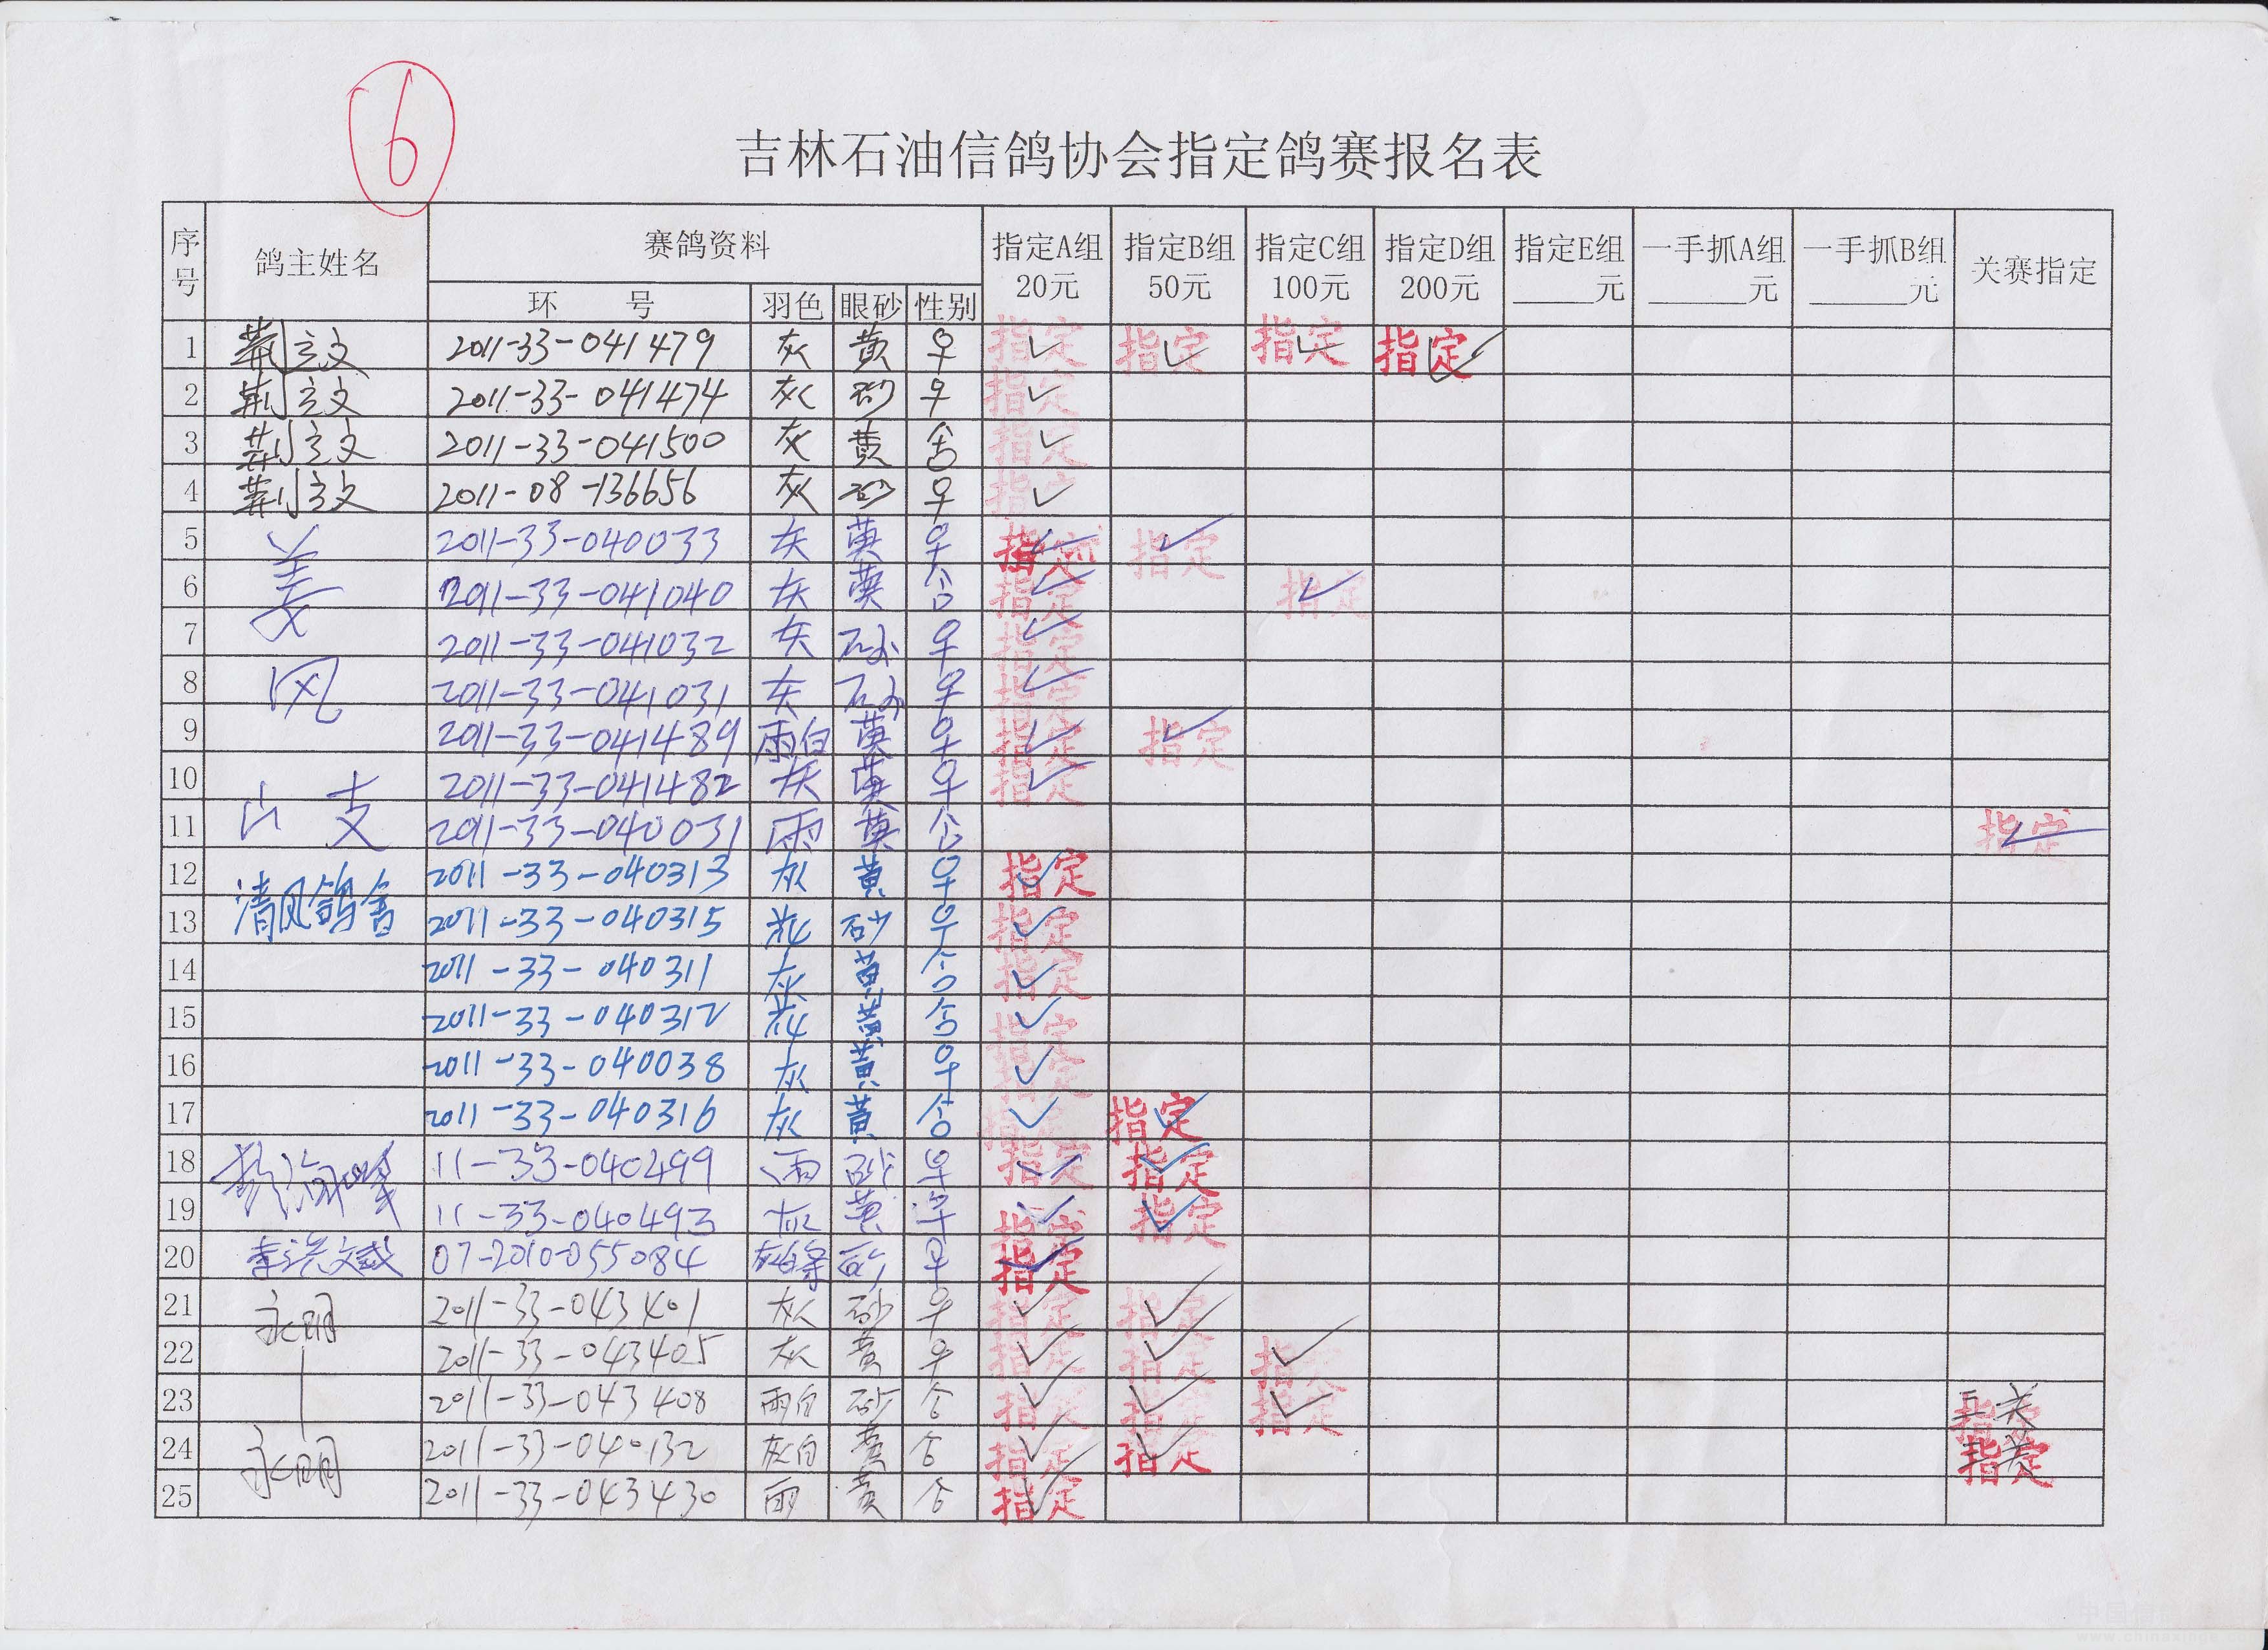 6
吉林石油信鸽协会指定鸽赛报名表
序号 鸽主姓名 赛鸽资料 指定A组 20元 指定B组 50元 指定C组 100元 指定D组 200元 指定E组 ____元 一手抓A组 ____元 一手抓B组 ____元 关赛指定
环 号 羽色 眼砂 性别
1 荆立文 2011-33-041479 灰 黄 ♀ 指定 ✓ 指定 ✓ 指定 ✓ 指定 ✓
2 荆立文 2011-33-041474 灰 砂 ♀ 指定 ✓
3 荆立文 2011-33-041500 灰 黄 指定 ✓
4 荆立文 2011-08-136656 灰 砂 ♀ 指定 ✓
5 姜 2011-33-040033 灰 黄 ♀ 指定 ✓ 指定 ✓
6 2011-33-041040 灰 黄 指定 ✓ 指定 ✓
7 2011-33-041032 灰 砂 ♀ 指定 ✓
8 风 2011-33-041031 灰 砂 ♀ 指定 ✓
9 2011-33-041489 雨白 黄 ♀ 指定 ✓ 指定 ✓
10 2011-33-041482 灰 黄 ♀ 指定 ✓
11 山 支 2011-33-040031 雨 黄 指定 ✓
12 清风鸽舍 2011-33-040313 灰 黄 ♀ 指定 ✓
13 2011-33-040315 花 砂 ♀ 指定 ✓
14 2011-33-040311 灰 黄 指定 ✓
15 2011-33-040312 花 黄 指定 ✓
16 2011-33-040038 灰 黄 ♀ 指定 ✓
17 2011-33-040316 灰 黄 指定 ✓ 指定 ✓
18 11-33-040499 雨 砂 ♀ 指定 ✓ 指定 ✓
19 11-33-040493 灰 黄 ♀ 指定 ✓ 指定 ✓
20 李洪文 07-2010-055084 灰白条 砂 ♀ 指定 ✓
21 永明 2011-33-043401 灰 砂 ♀ 指定 ✓ 指定 ✓
22 2011-33-043405 灰 黄 ♀ 指定 ✓ 指定 ✓ 指定 ✓
23 2011-33-043408 雨白 砂 指定 ✓ 指定 ✓ 指定 ✓ 三关 指定
24 永明 2011-33-040132 灰白 黄 指定 ✓ 指定 ✓ 三关 指定
25 2011-33-043430 雨 黄 指定 ✓